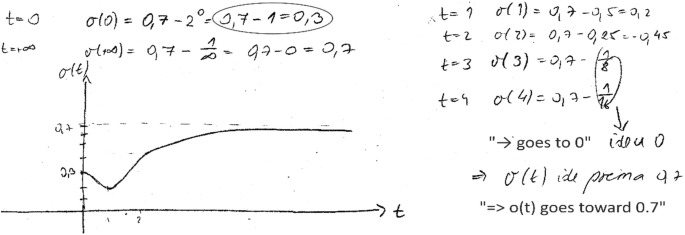 t=0 σ(0) = 0,7 - 2⁰ = 0,7 - 1 = 0,3
t=+∞ σ(+∞) = 0,7 - 1/∞ = 0,7 - 0 = 0,7
σ(t)
0,7
0,3
1 2
t
t=1 σ(1) = 0,7 - 0,5 = 0,2
t=2 σ(2) = 0,7 - 0,25 = -0,45
t=3 σ(3) = 0,7 - 1/8
t=4 σ(4) = 0,7 - 1/16
"→ goes to 0" idou 0
⇒ σ(t) ide prema 0,7
"=> o(t) goes toward 0.7"